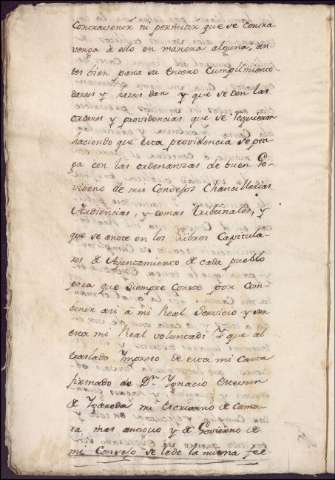 contravenir ni permitir que se contra
venga à ello en manera alguna, an
tes bien para su entero cumplimiento
dareis y areis dar y que se den las
ordenes y providencias que se requieran
haciendo que esta providencia se pon
ga con las ordenanzas de buen Go
vierno de mis Consejos Chancillerias
Audiencias, y demas Tribunales, y
que se anote en los Libros Capitula
res d Ayuntamiento d cada pueblo
para que siempre conste por con
benir asi à mi Real servicio y ser
esta mi Real voluntad: Y que al
traslado Impreso de esta mi Carta
firmado de Dn Ignacio Esteban
d Ygareda mi Escrivano de Cama
ra mas antiguo y d Govierno de
mi Consejo se le dè la misma feè